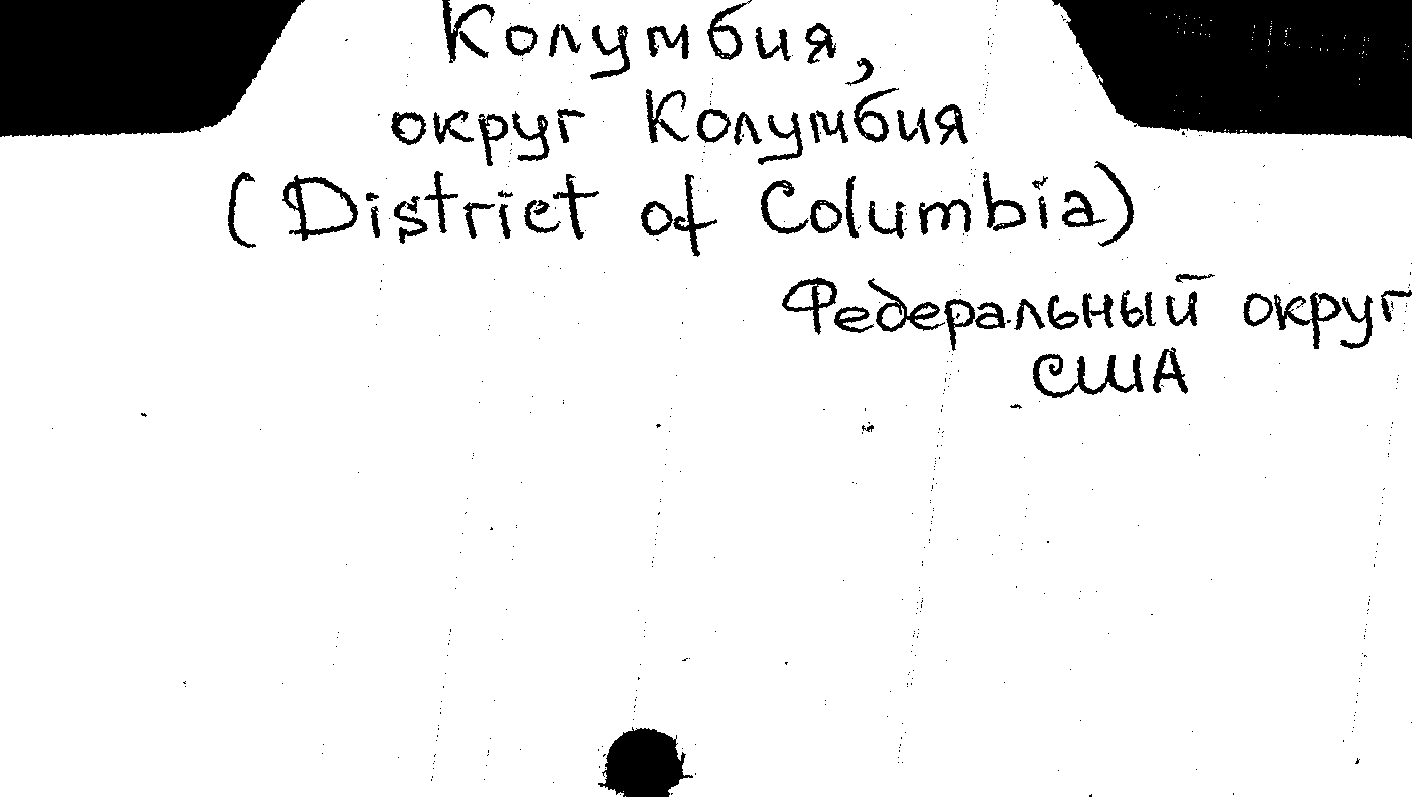 Колумбия,
округ Колумбия
(District of Columbia)
Федеральный округ
США